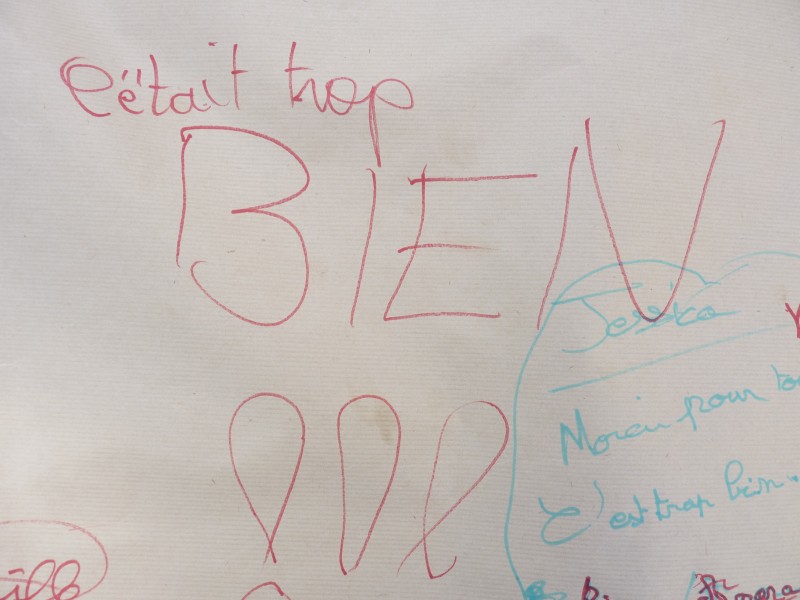 C'était trop
BIEN
!!!
Jessica
Merci pour
C'est trop bien.